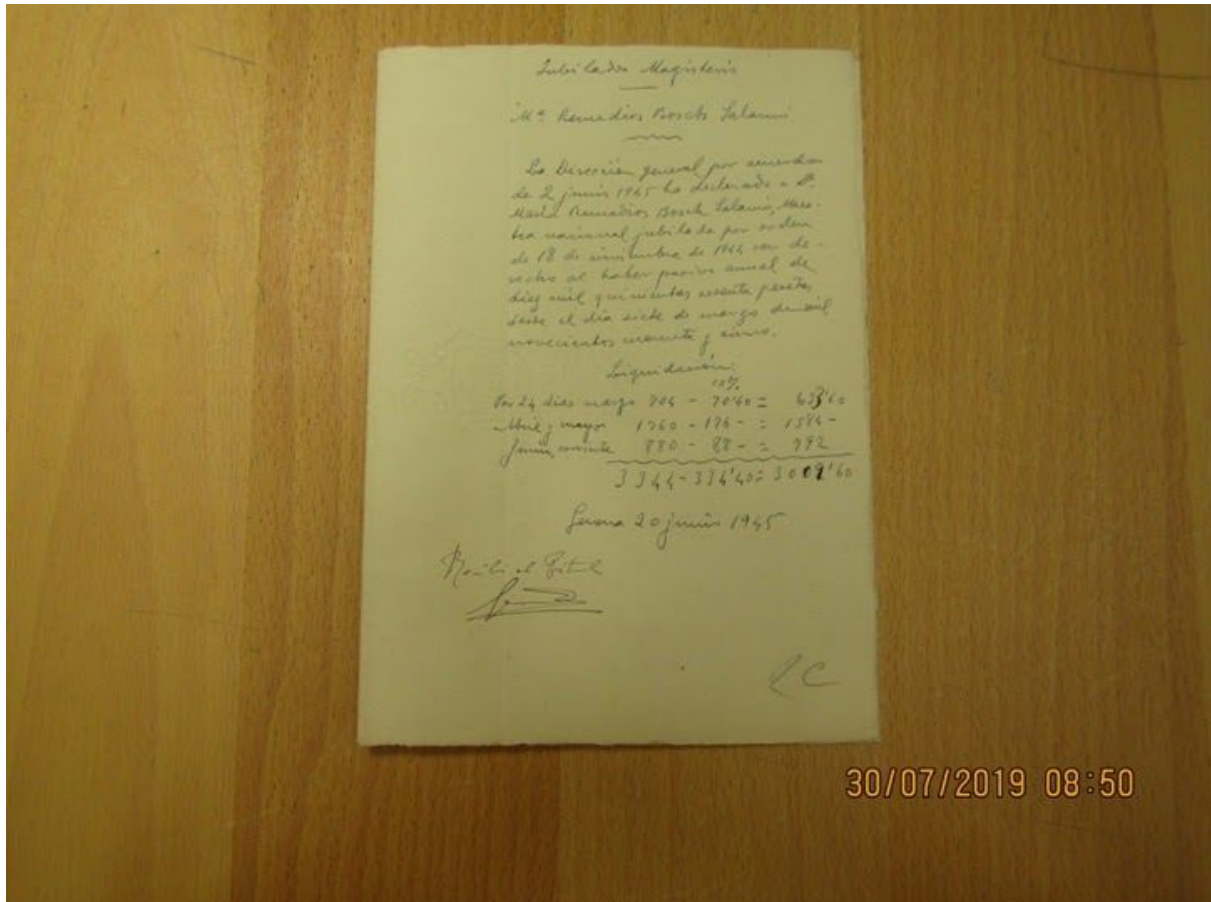 Jubilados Magisterio
Mª Remedios Bosch Salamó
La Dirección general por acuerdo
de 2 junio 1945 ha declarado a Dª
María Remedios Bosch Salamó, Maes-
tra nacional jubilada por orden
de 18 de noviembre de 1944 con de-
recho al haber pasivo anual de
diez mil quinientas sesenta pesetas
desde el día siete de marzo de mil
novecientos cuarenta y cinco.
Liquidación:
10%
Por 24 días marzo 704 - 70'40 = 633'60
Abril y mayo 1760 - 176 - = 1584 -
Junio, corriente 880 - 88 - = 792
3344 - 334'40 = 3009'60
Gerona 20 junio 1945
Recibí el Título